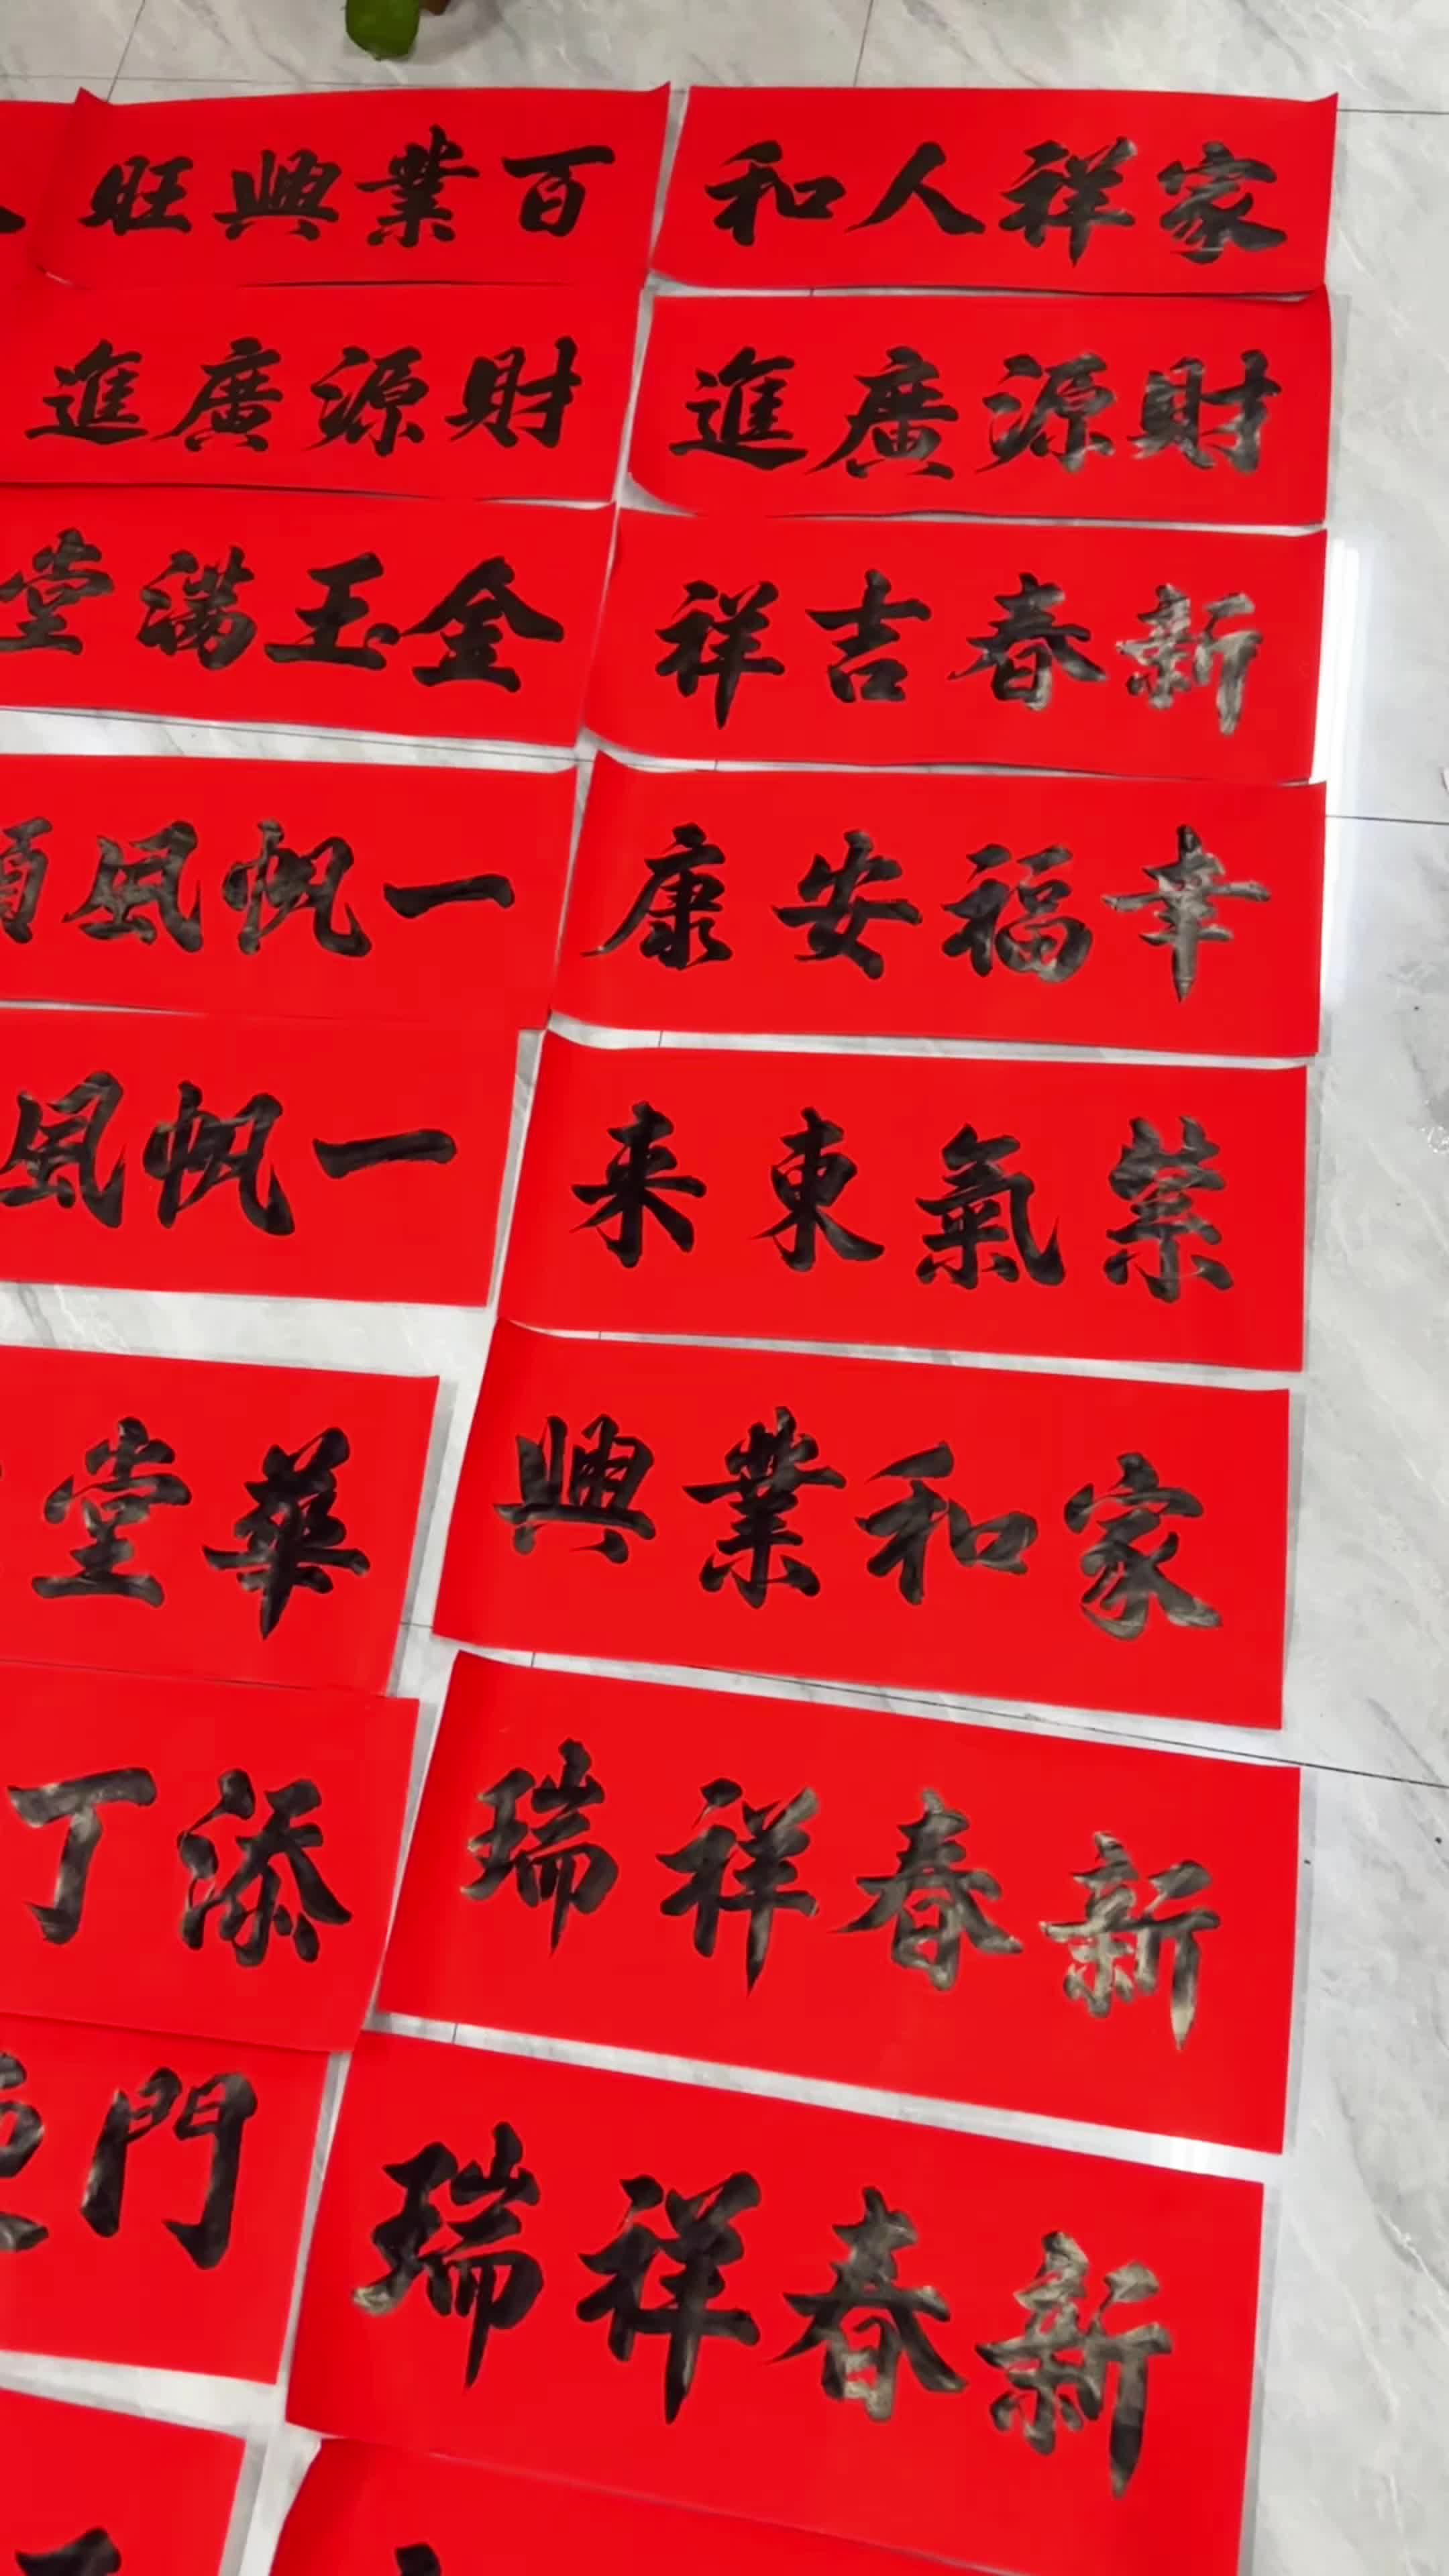 家祥人和
財源廣進
新春吉祥
幸福安康
紫氣東来
家和業興
新春祥瑞
新春祥瑞
百業興旺
財源廣進
金玉满堂
一帆風
一帆風
華堂
添丁
門